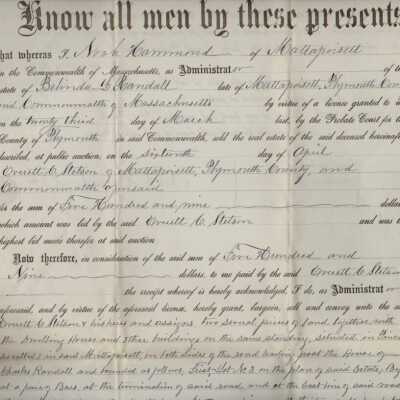 Know all men by these presents
That whereas I Noah Hammond of Mattapoisett
in the Commonwealth of Massachusetts, as Administrator of t
estate of Belinda L Randall late of Mattapoisett, Plymouth Cou
and Commonwealth of Massachusetts by virtue of a license granted to
on the twenty third day of March last, by the Probate Court for t
County of Plymouth in said Commonwealth, sold the real estate of the said deceased hereinaf
described, at public auction, on the sixteenth day of April
Everett C. Stetson of Mattapoisett, Plymouth County, and
Commonwealth aforesaid
for the sum of Five Hundred and nine dolla
which amount was bid by the said Everett C Stetson and was t
highest bid made therefor at said auction
Now therefore, in consideration of the said sum of Five Hundred and
Nine dollars, to me paid by the said Everett C. Stetson
the receipt whereof is hereby acknowledged, I do, as Administrator
aforesaid, and by virtue of the aforesaid license, hereby grant, bargain, sell and convey unto the s
Everett C. Stetson & his heirs and assigns two several pieces of land, together with
the Dwelling House and other buildings on the same standing, situated on
in said Mattapoisett, on both sides of the road leading past the House of
Charles Randall and bounded as follows, First Lot No 3 on the plan of said Estate,
at a pair of Bars, at the termination of said road, and at the East line of said road